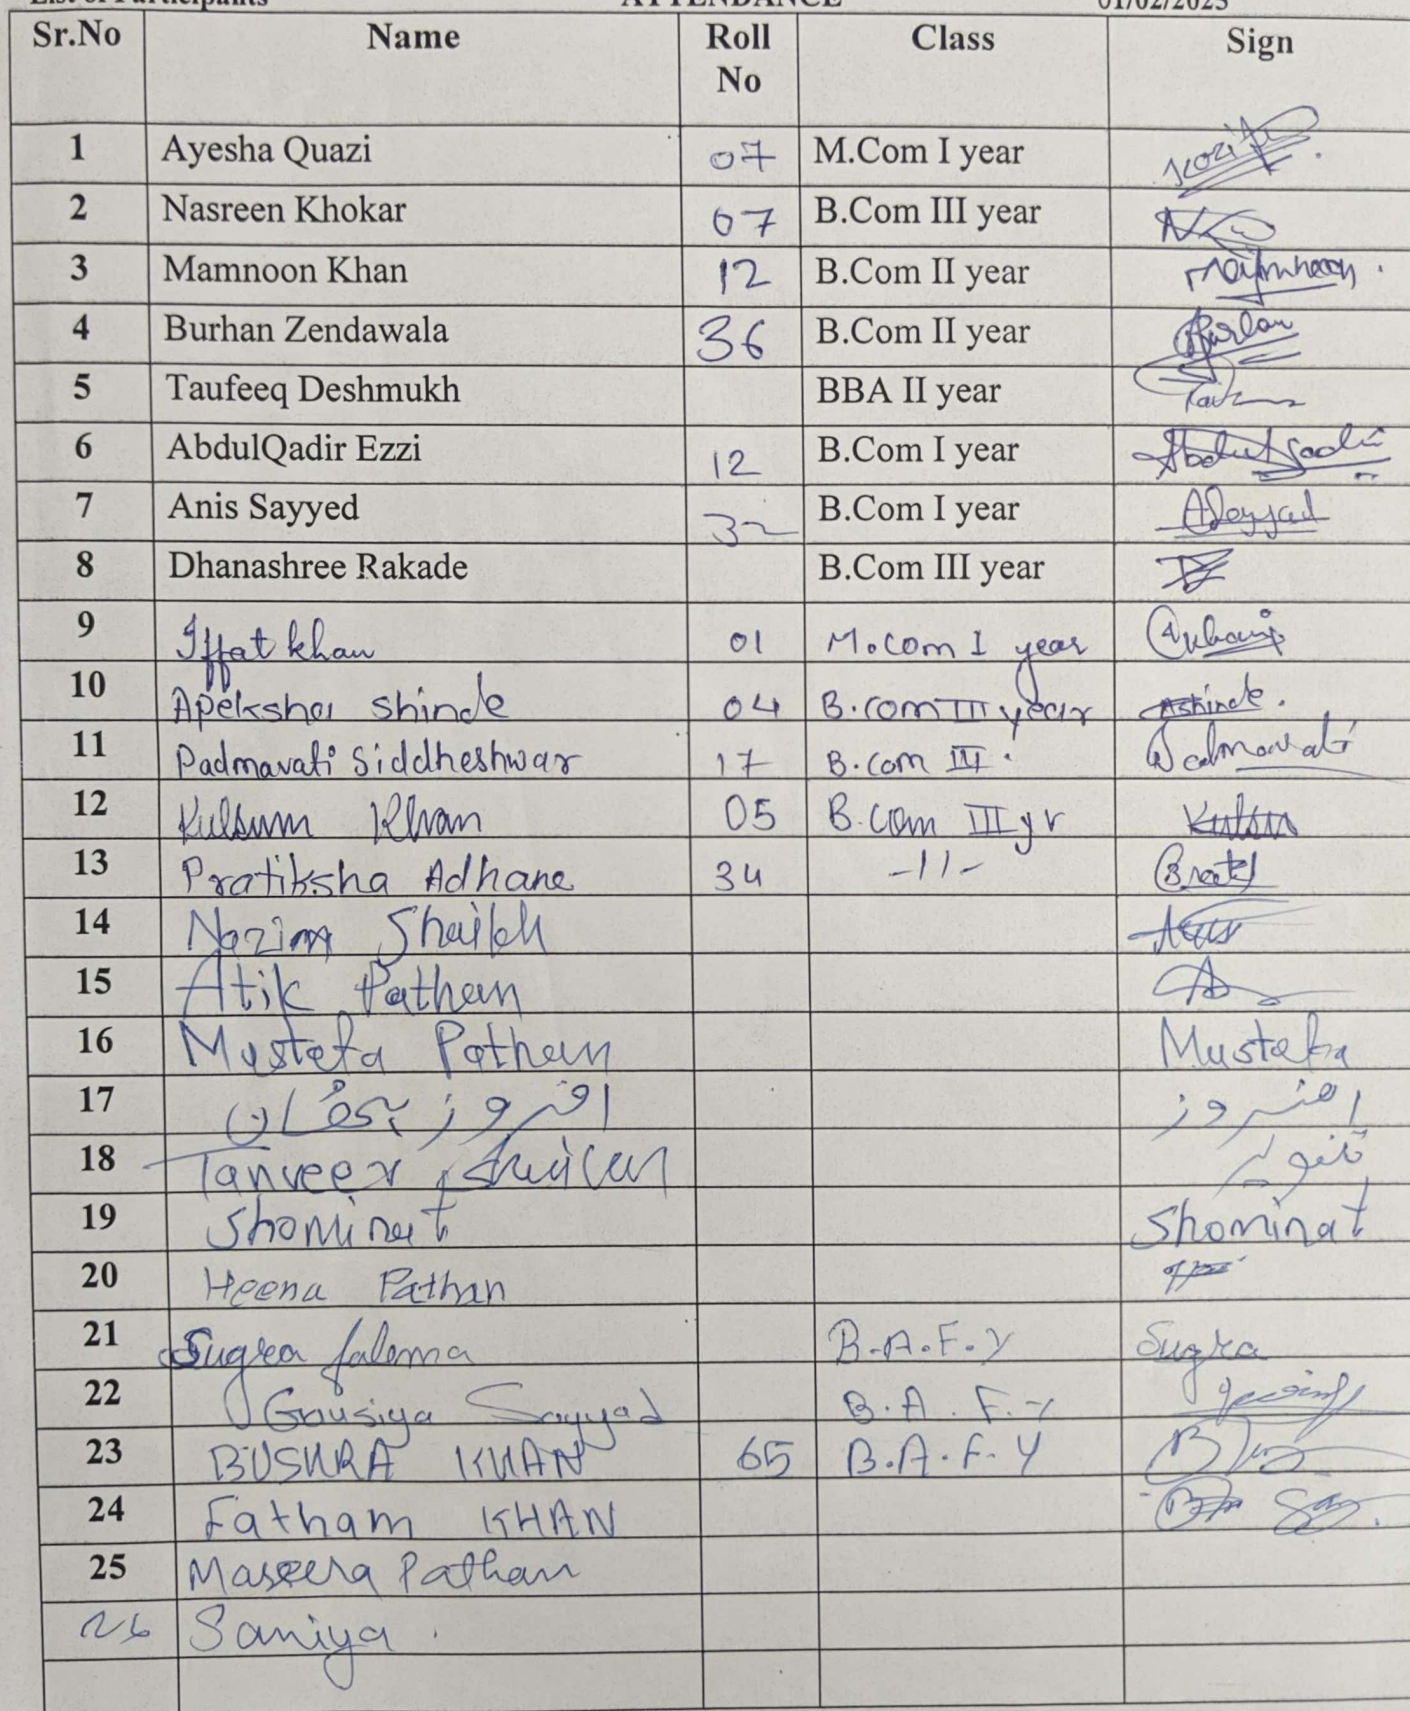 List of Participants ATTENDANCE 01/02/2025
Sr.No Name Roll No Class Sign
1 Ayesha Quazi 07 M.Com I year
2 Nasreen Khokar 07 B.Com III year
3 Mamnoon Khan 12 B.Com II year
4 Burhan Zendawala 36 B.Com II year Burhan
5 Taufeeq Deshmukh BBA II year
6 AbdulQadir Ezzi 12 B.Com I year
7 Anis Sayyed 32 B.Com I year ASayyad
8 Dhanashree Rakade B.Com III year
9 Iffat khan 01 M.com I year
10 Apeksha shinde 04 B.com III year AShinde.
11 Padmavati Siddheshwar 17 B.com III. Padmavati
12 Kulsum Khan 05 B.com III yr Kulsum
13 Pratiksha Adhane 34 -11-
14 Nazim Shaikh
15 Atik Pathan
16 Mustafa Pathan Mustafa
17 افروز پٹھان افروز
18 Tanveer تنویر
19 Shominat Shominat
20 Heena Pathan
21 Sugra fatema B.A.F.Y Sugra
22 Gousiya Sayyad B.A.F.Y
23 BUSHRA KHAN 65 B.A.F.Y
24 Fatham KHAN
25 Maseera Pathan
26 Saniya